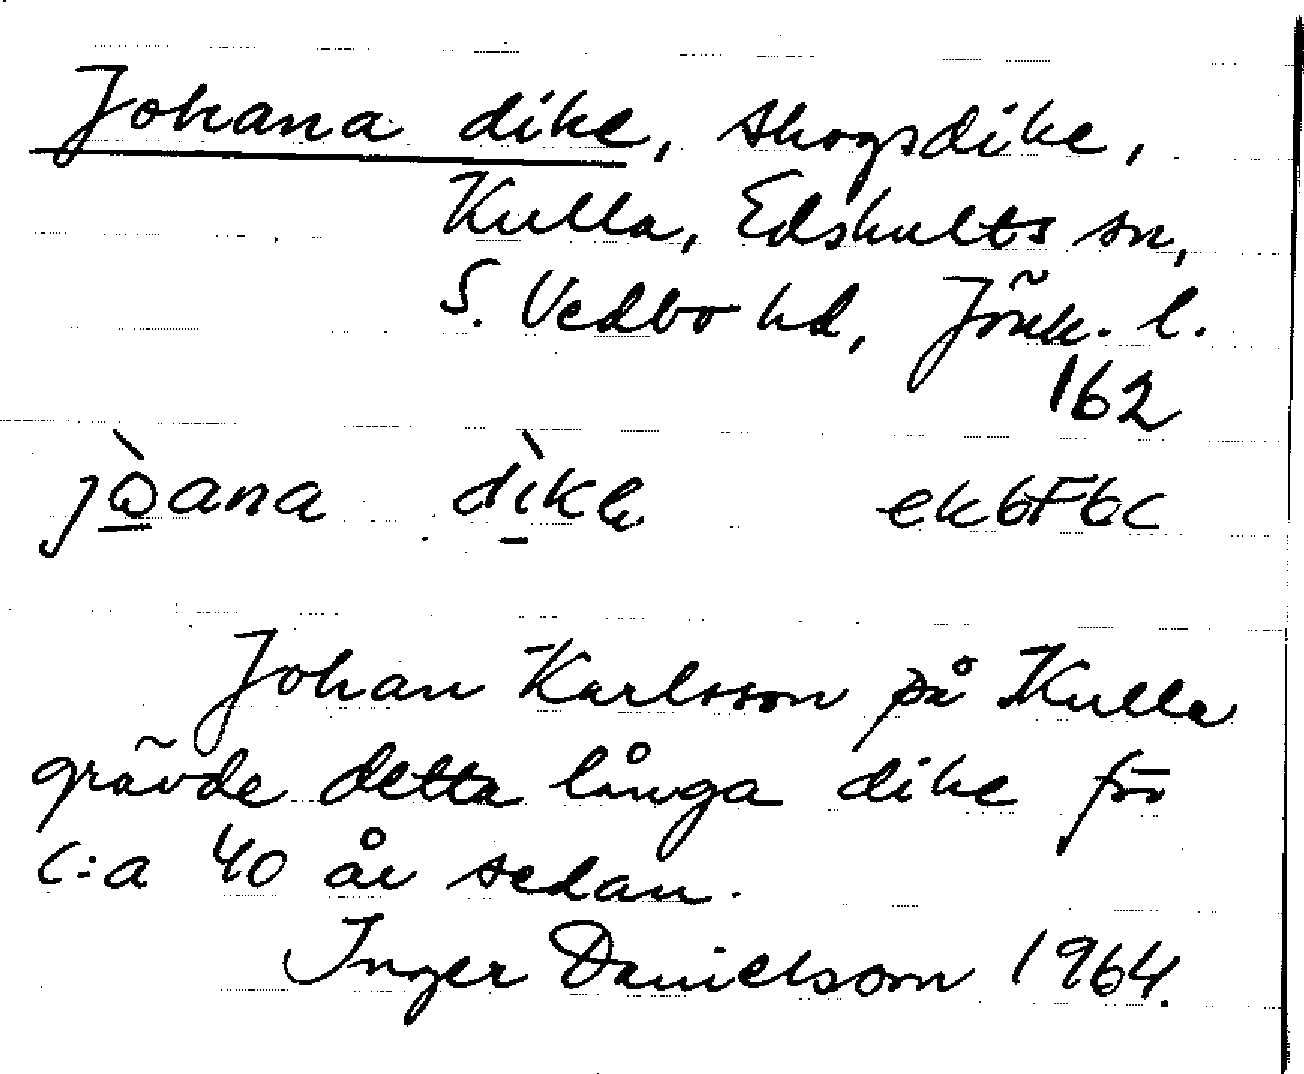 Johana dike, skogsdike,
Kulla, Edshults sn,
S. Vedbo hd, Jönk. l.
162
jòana dìkə ekbFbc
Johan Karlsson på Kulla
grävde detta långa dike för
c:a 40 år sedan.
Inger Danielsson 1964.